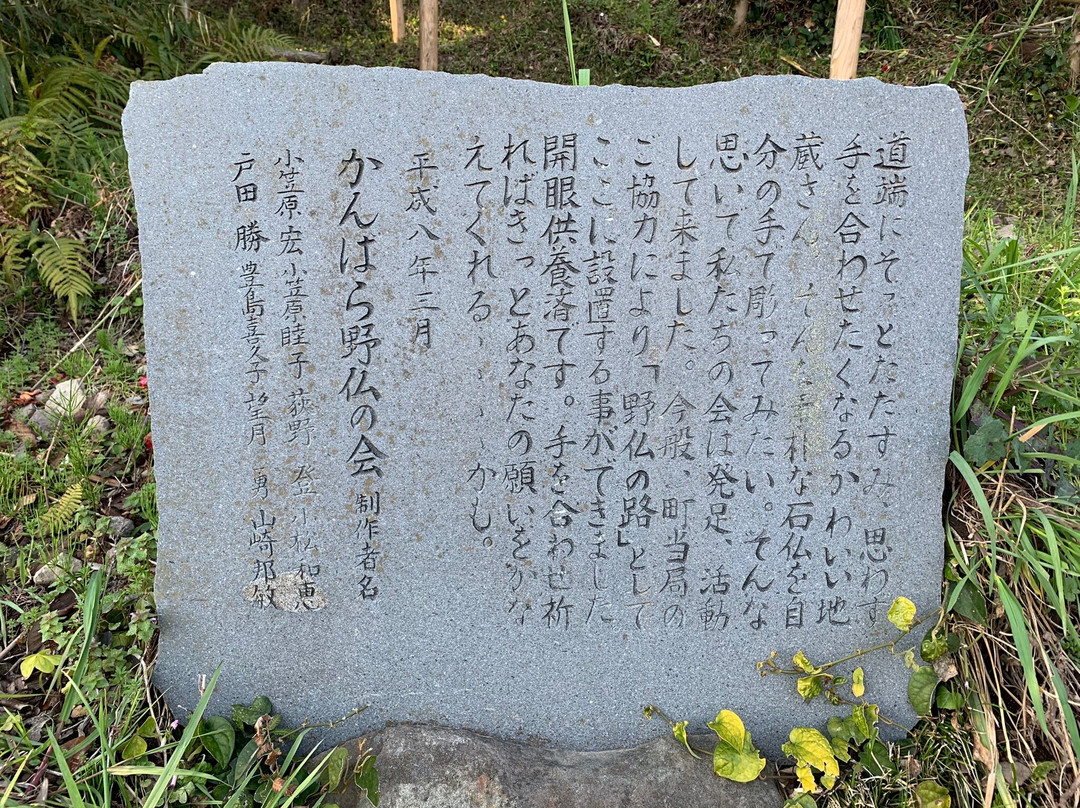 道端にそっとたたずみ、思わず
手を合わせたくなるかわいい地
蔵さん、そんな素朴な石仏を自
分の手で彫ってみたい。そんな
思いで私たちの会は発足、活動
して来ました。今般、町当局の
ご協力により「野仏の路」として
ここに設置する事ができました
開眼供養済です。手を合わせ祈
ればきっとあなたの願いをかな
えてくれる、、、、かも。
平成八年三月
かんばら野仏の会 制作者名
小笠原 宏 小笠原睦子 荻野 登 小松和恵
戸田 勝 豊島喜久子 望月 勇 山崎邦敏